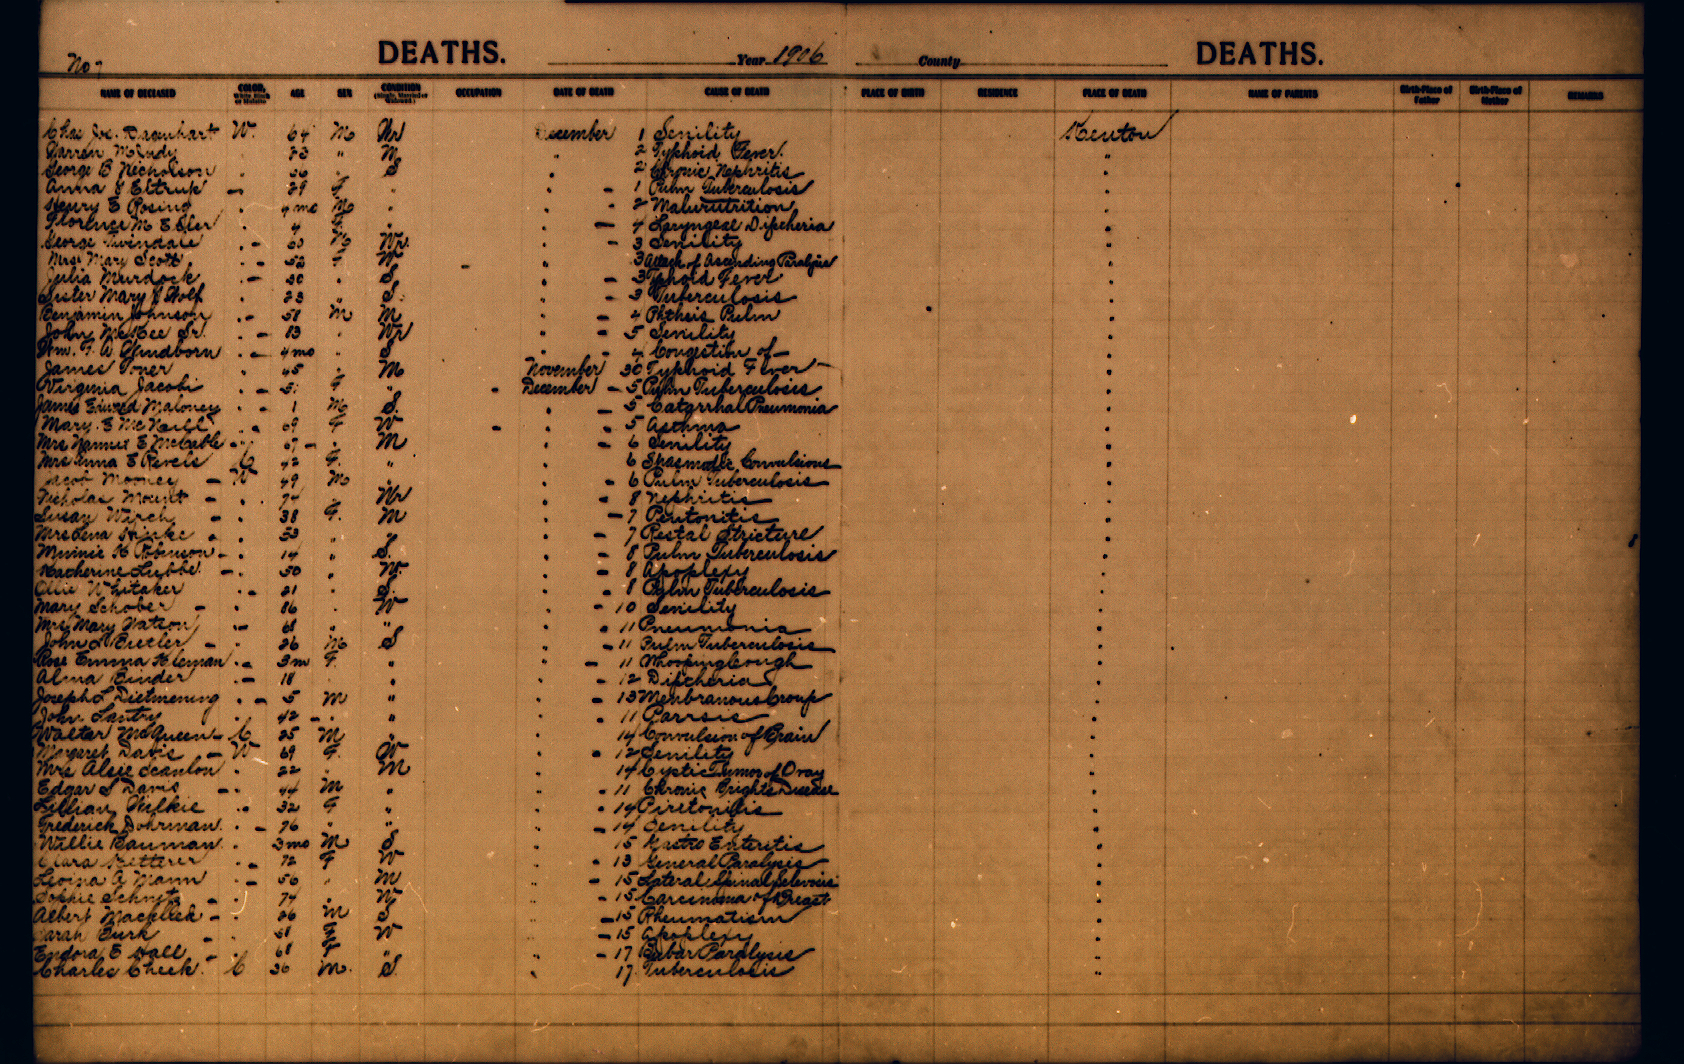 No 7 DEATHS. Year 1906 County DEATHS.
NAME OF DECEASED COLOR, White Black or Mulatto AGE SEX CONDITION (Single, Married or Widowed) OCCUPATION DATE OF DEATH CAUSE OF DEATH PLACE OF BIRTH RESIDENCE PLACE OF DEATH NAME OF PARENTS Birth-Place of Father Birth-Place of Mother REMARKS
Chas Jos. W. 64 M Wr December 1 Senility Kenton
" M " 2 Typhoid Fever. "
George B Nicholson " 56 " S " 2 Chronic Nephritis "
Anna 29 F " " 1 Pulm Tuberculosis "
Henry E Rosing " 4 mo M " " 2 Malnutrition "
Florence M 4 F " " 4 Laryngeal Diptheria "
George Twindale " 60 M Wr. " 3 Senility "
Mrs Mary Scott " 52 F W " 3 Attack of Ascending Paralysis "
Julia Murdock " 30 " S " 3 Typhoid Fever "
Sister Mary " 23 " S. " 3 Tuberculosis "
Benjamin Johnson " 51 M M " 4 Phthisis Pulm "
John McKee Sr. " 83 " Wr " 5 Senility "
Wm. F. A Windborn " 4 mo " S " 4 Congestion of "
James Toner " 45 " M November 30 Typhoid Fever "
Virginia Jacobi " F " December 5 Pulm Tuberculosis "
James Edward Maloney " 1 M S. " 5 Catarrhal Pneumonia "
Mary E McNeill " 69 F W " 5 Asthma "
Mrs E McCable " 67 " M " 6 Senility "
Mrs Anna E Revels C 42 F. " " 6 Spasmodic Convulsions "
Jacob Mooney W 49 M " " 6 Pulm Tuberculosis "
Nicholas Mount " 74 " Wr " 8 Nephritis "
Susan " 38 F. M " 7 Peritonitis "
Mrs Lena Hinke " 53 " " " 7 Rectal Stricture "
Minnie H Robinson " 14 " S. " 8 Pulm Tuberculosis "
Katherine Lubbe. " 50 " W. " 8 Apoplexy "
Ollie Whitaker " 21 " S. " 8 Pulm Tuberculosis "
Mary Schober " 86 " W " 10 Senility "
Mrs Mary Watson " 68 " " " 11 Pneumonia "
John L " 26 M S " 11 Pulm Tuberculosis "
Rose Emma Kleman " 3 m F. " " 11 Whooping Cough "
Alma Binder " 18 " " " 12 Diptheria "
Joseph L Dietmening " 5 M " " 13 Menbranous Croup "
John Lantry " 42 " " " 11 "
Walter McQueen C 25 M " " 14 Convulsion of Brain "
Margaret Davis W 69 F. W " 12 Senility "
Mrs Alsie Scanlon " 22 " M " 14 Cystic Tumor of Ovary "
Edgar S Davis " 44 M " " 11 Chronic Brights Disease "
Lillian Wilkie " 32 F " " 14 Piretonitis "
Frederick Dohrman " 76 " " " 14 Senility "
Willie Bauman " 3 mo M S " 15 Gastro Enteritis "
Clara Ketterer " 72 F W " 13 General Paralysis "
Levina A Mann " 56 " M " 15 Lateral Spinal Sclerosis "
Sophie " 74 " W " 15 Carcinoma of Breast "
Albert " 26 M S " 15 Rheumatism "
Sarah Burk " F W " 15 Apoplexy "
Endora E Hall " 68 F " " 17 Bulbar Paralysis "
Charles Cheek C 36 M. S. " 17 Tuberculosis "